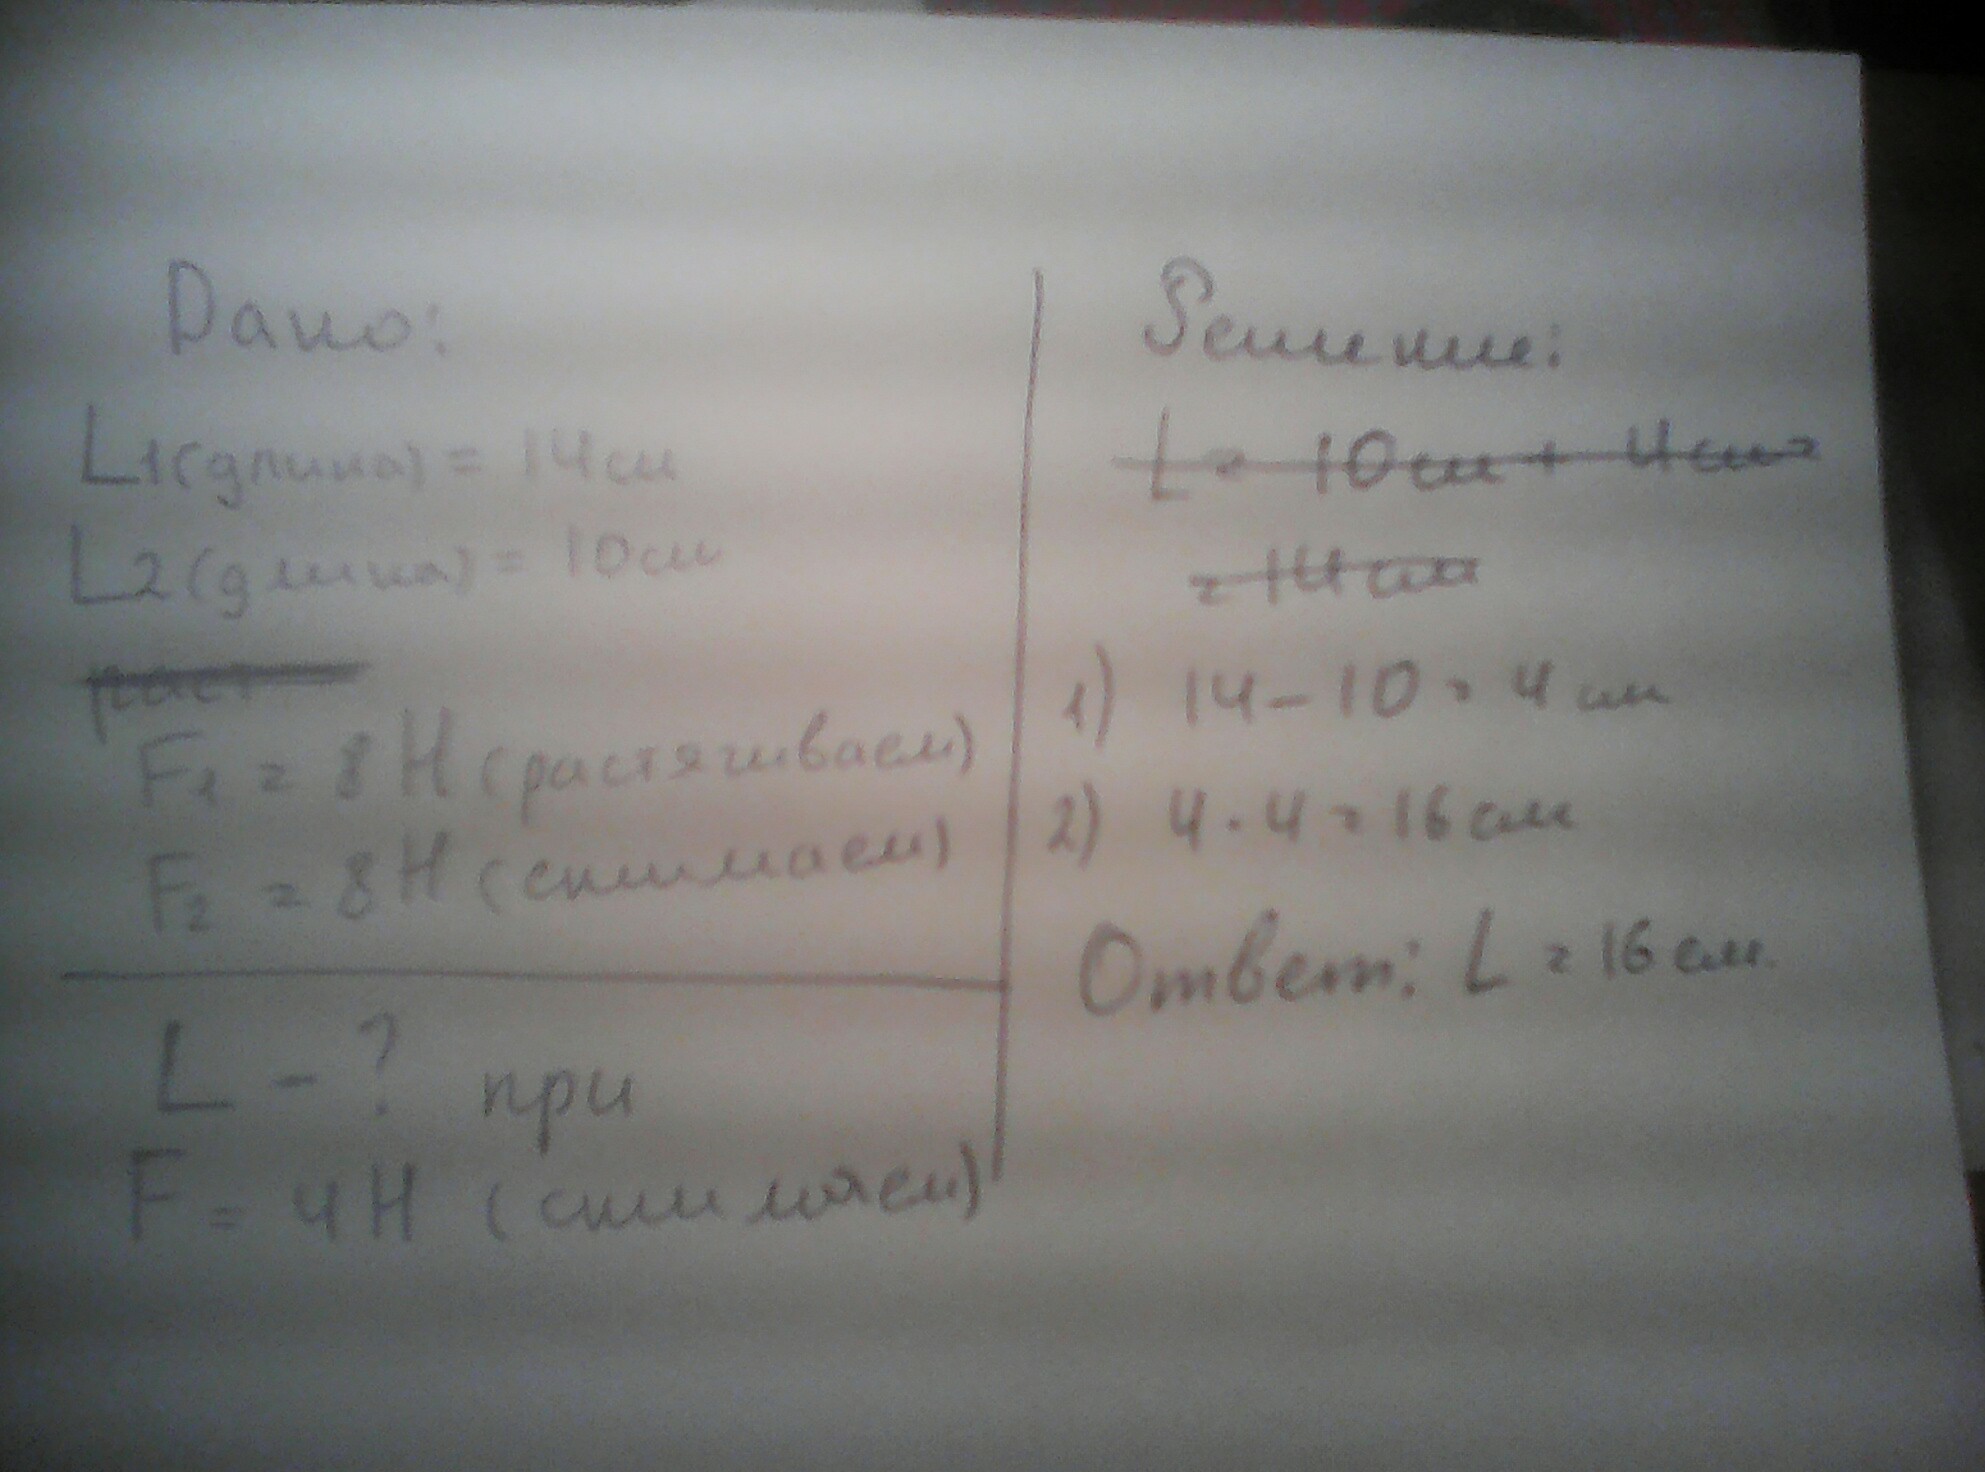 Дано:
L1(длина) = 14см
L2(длина) = 10см
раст
F1 = 8Н (растягиваем)
F2 = 8Н (снимаем)
L - ? при
F = 4Н (снимаем)
Решение:
L = 10см + 4см =
= 14см
1) 14 - 10 = 4 см
2) 4 · 4 = 16 см
Ответ: L = 16 см.